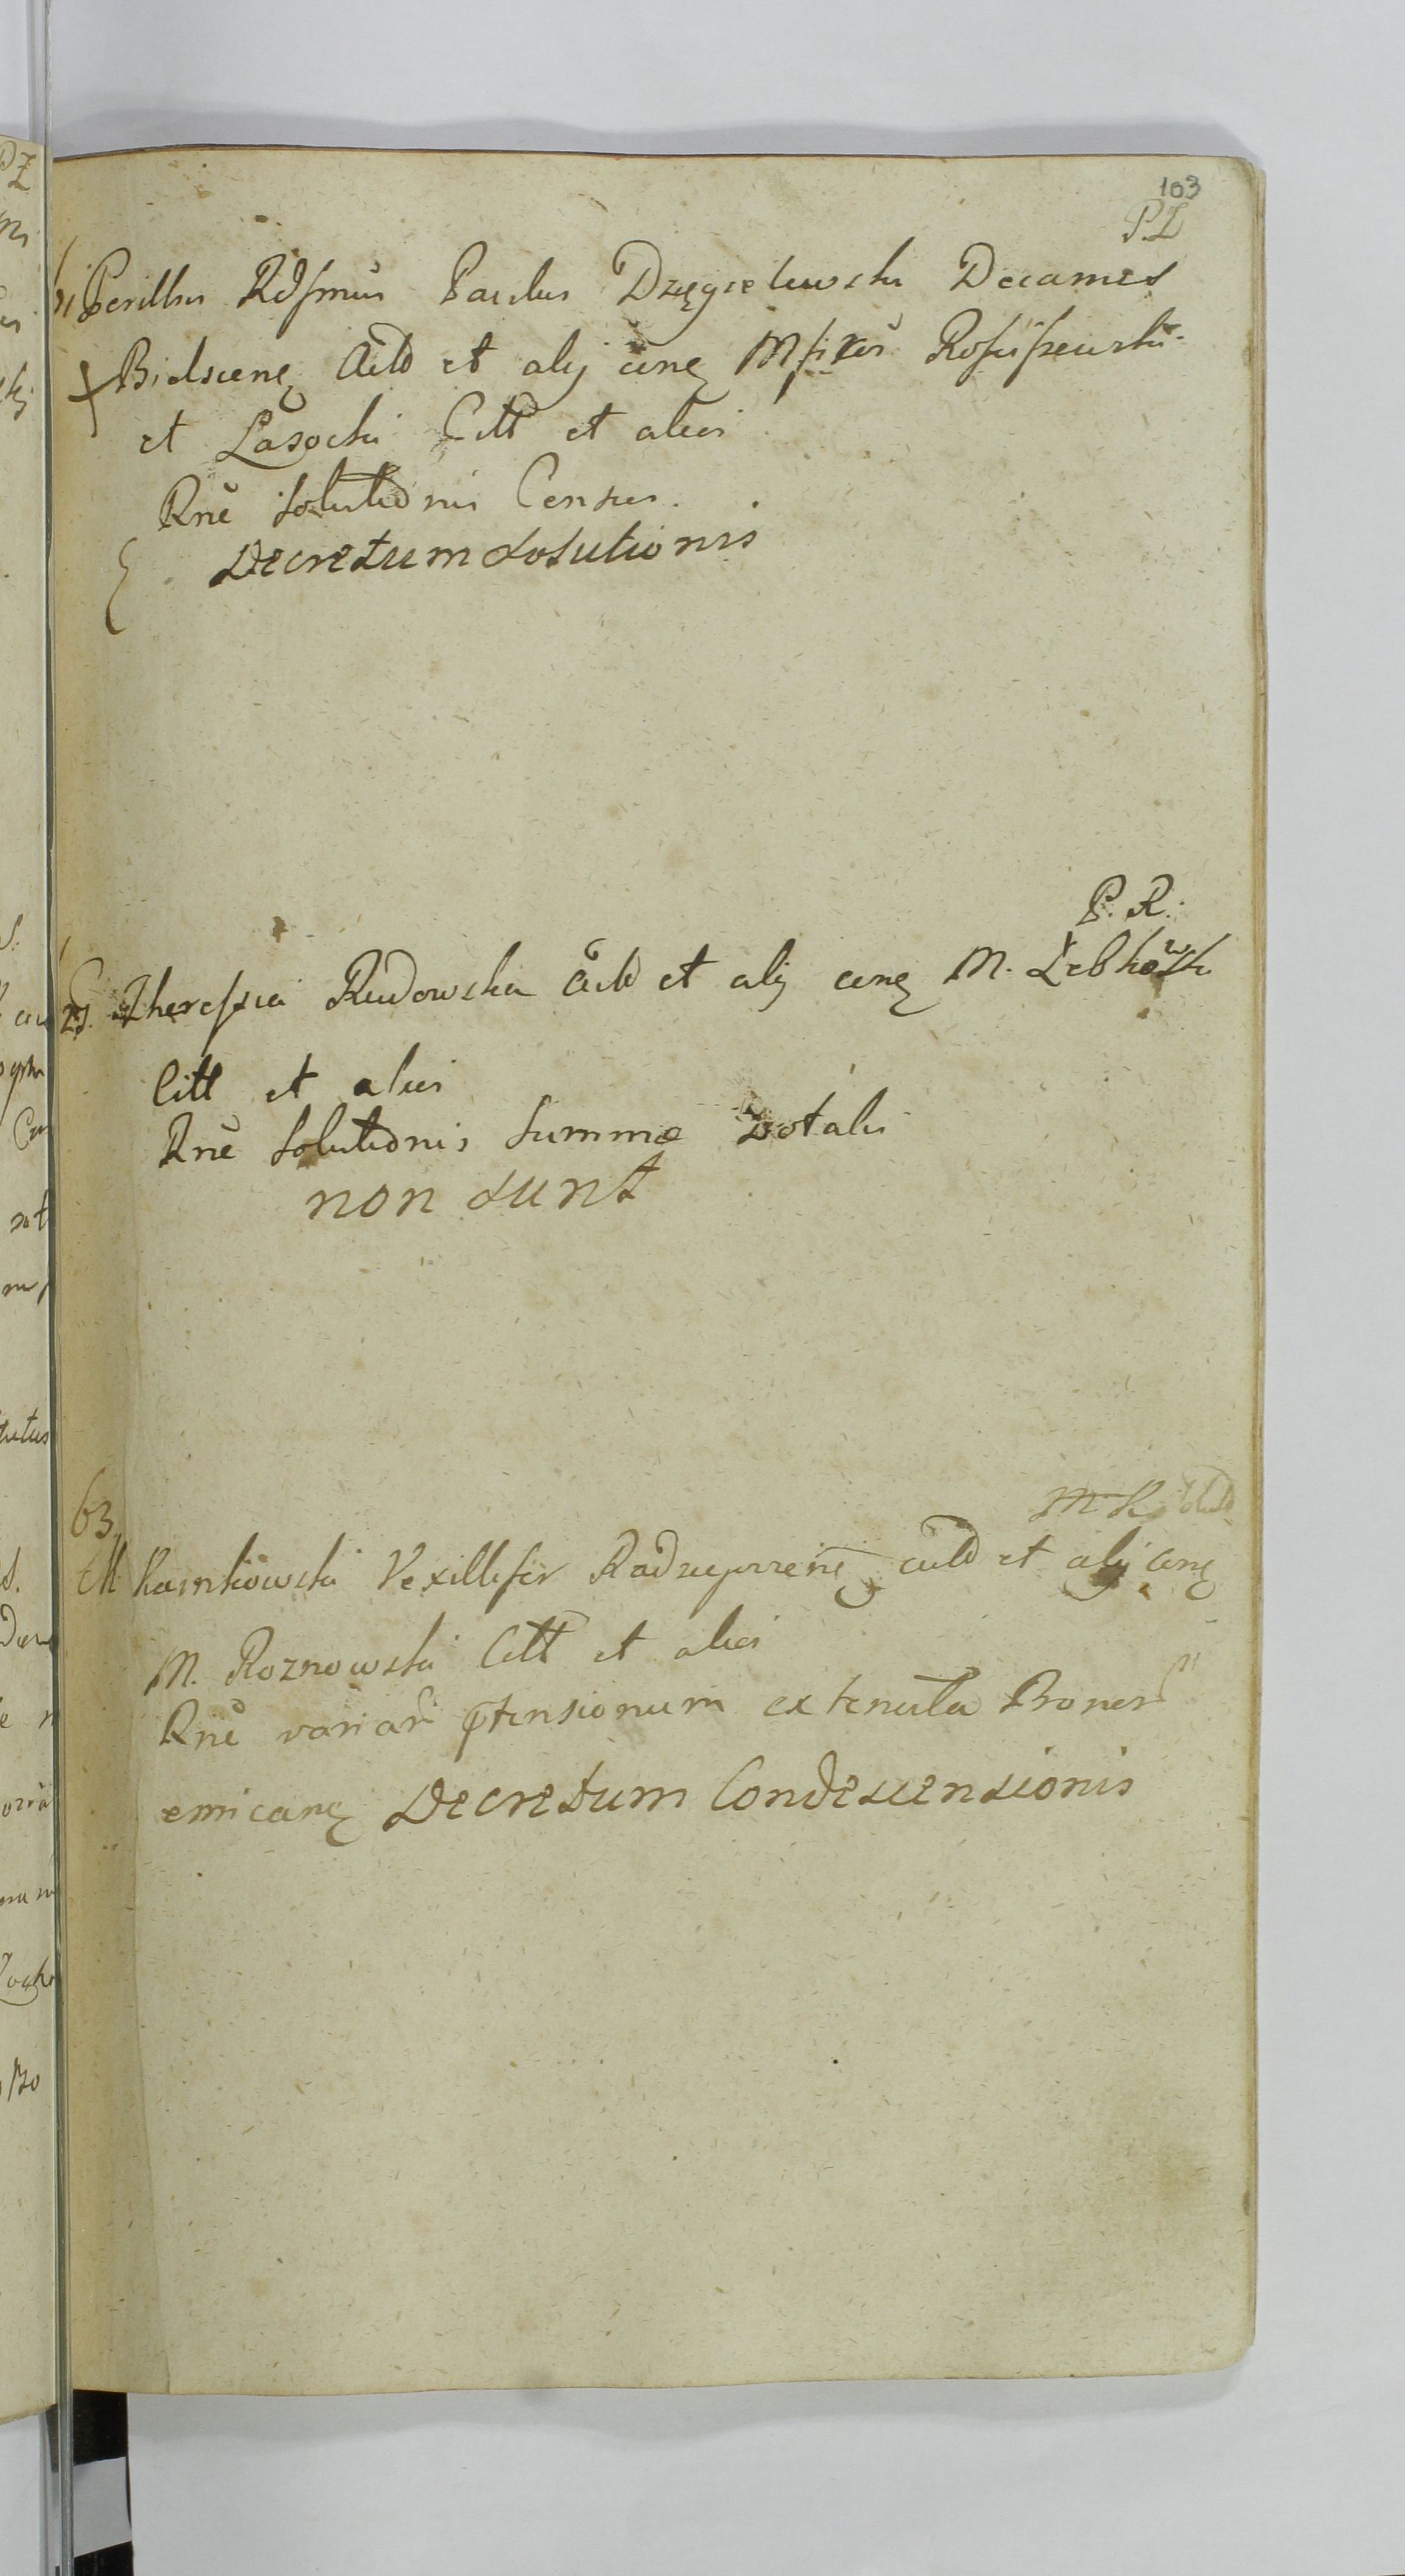 103
P.Z
61 Perillus Rdssmus Paulus Dzięgielewski Decanus
Bielscenę Actd et alij cunę Mfikos Rosciszewski
et Lasocki Citt et alios
Rnē Solutionis Census.
Decretum Solutionis
P. R.
Theressia Rudowska Actd et alij cunę M. Lebkowsk
Citt et alios
Rnē Solutionis Summæ Dotalis
non sunt
M K
63.
M. Karnkowski Vexillifer Radziejovienę actd et alij cunę
M. Roznowski Citt et alios
Rnē variar ptensionum ex tenuta Bonor
emicanę Decretum Condescensionis